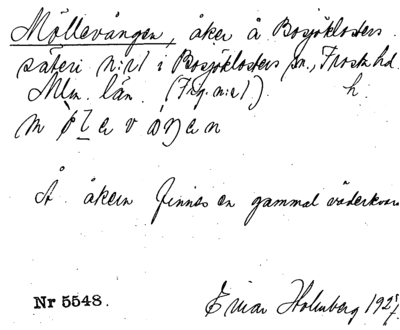 Möllevången, åker å Bosjöklosters
säteri n:r 1 i Bosjöklosters sn., Frosta hd.
Mlm. län. (Fig. n:r 1). h.
Å åkern finnes en gammal väderkvarn
Nr 5548.
Einar Holmberg 1927.